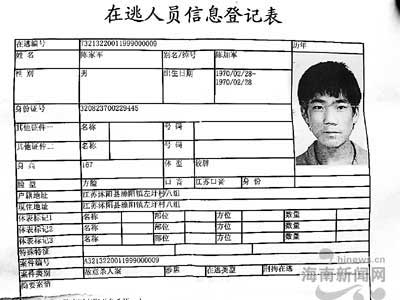 在逃人员信息登记表
在逃编号 T3213220011999000009 历年
姓名 陈家军 别名/绰号 陈加军
性别 男 出生日期 1970/02/28-
1970/02/28
身份证号 320823700229445
其他证件一 名称 号码
其他证件二 名称 号码
身高 167 体型 较胖
脸型 方脸 口音 江苏口音 身份
户籍地址 江苏沭阳县
现住地址 江苏沭阳县
体表标记1 名称 部位 方位 数量
体表标记2 名称 部位 方位 数量
体表标记3 名称 部位 方位 数量
特殊特征
案件编号 A3213220011999000009
案件类别 故意杀人案 涉黑 在逃类型 刑拘在逃
简要案情
hinews.cn
海南新闻网